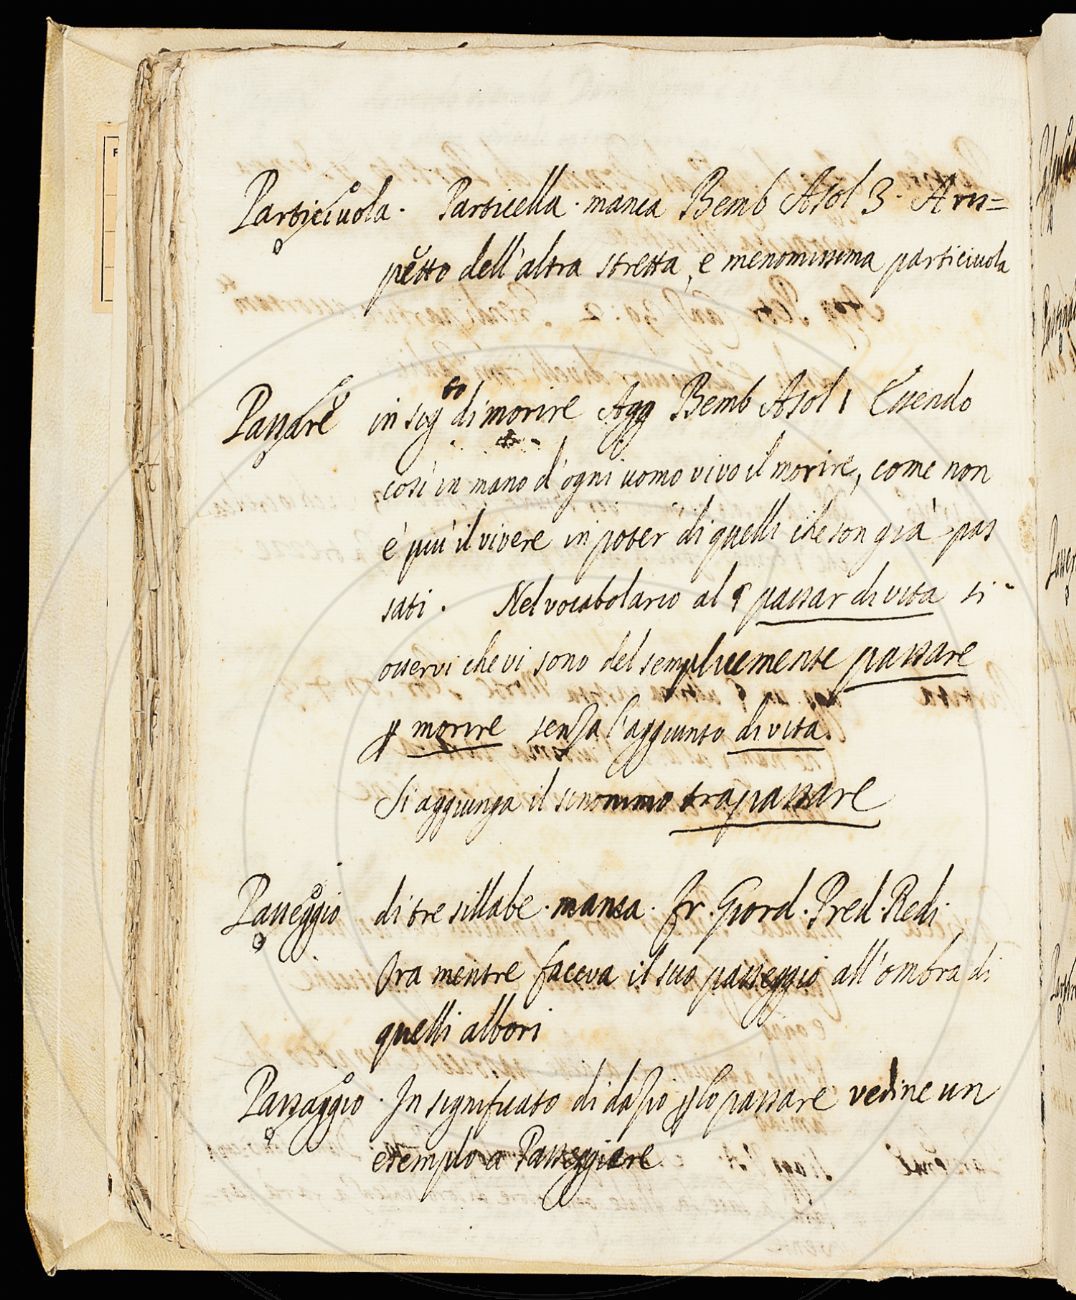 Particiuola. Particella. manca Bemb Asol 3. A ris=
petto dell'altra stretta, e menomissima particiuola
Passare in sig.to di morire Agg Bemb Asol 1 Essendo
così in mano d'ogni uomo vivo il morire, come non
è più il vivere in poter di quelli che son già pas
sati. Nel vocabolario al § passar di vita si
osservi che vi sono del semplicemente passare
p morire senza l'aggiunto di vita.
Si aggiunga il sinonimo trapassare
Passeggio di tre sillabe. manca. Fr. Giord. Pred. Red.
Ora mentre faceva il suo passeggio all'ombra di
quelli albori
Passaggio. In significato di dazio p lo passare vedine un
esemplo a Passeggiere.